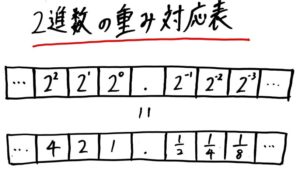 2進数の重み対応表
… 2² 2¹ 2⁰ . 2⁻¹ 2⁻² 2⁻³ …
=
… 4 2 1 . 1/2 1/4 1/8 …